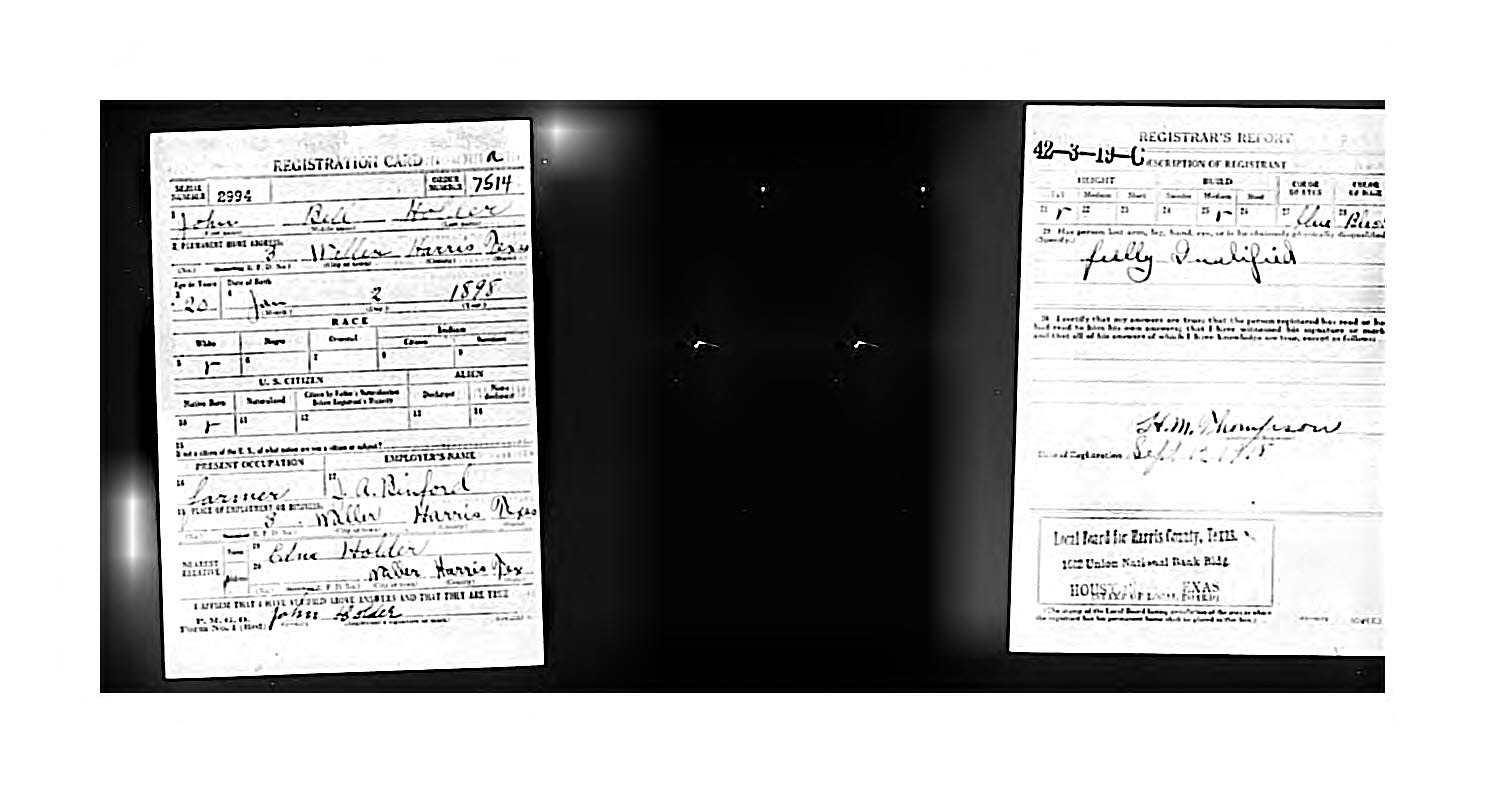 REGISTRATION CARD A
SERIAL NUMBER 2994 ORDER NUMBER 7514
1 John Bell Holder
(First name) (Middle name) (Last name)
2. PERMANENT HOME ADDRESS:
3 Waller Harris Texas
(No.) (City or town) (County) (State)
Age in Years Date of Birth
3 20 4 Jan 2 1898
(Month.) (Day.) (Year.)
RACE
White Negro Oriental Indian
Citizen Noncitizen
5 r 6 7 8 9
U. S. CITIZEN ALIEN
Native Born Naturalized Citizen by Father's Naturalization Before Registrant's Majority Declarant Non-declarant
10 r 11 12 13 14
15
If not a citizen of the U. S., of what nation are you a citizen or subject?
PRESENT OCCUPATION EMPLOYER'S NAME
16 farmer 17 A. Binford
18 PLACE OF EMPLOYMENT OR BUSINESS:
3 Waller Harris Texas
(No.) (City or town) (County) (State)
NEAREST RELATIVE Name 19 Holder
Address 20 Waller Harris Tex
(No.) (City or town) (County) (State)
I AFFIRM THAT I HAVE VERIFIED ABOVE ANSWERS AND THAT THEY ARE TRUE
P. M. G. O.
Form No. 1 (Red) John Holder
(Registrant's signature or mark)
REGISTRAR'S REPORT
42-3-19-C
DESCRIPTION OF REGISTRANT
HEIGHT BUILD COLOR OF EYES COLOR OF HAIR
Tall Medium Short Slender Medium Stout
21 r 22 23 24 25 r 26 27 Blue 28
29 Has person lost arm, leg, hand, eye, or is he obviously physically disqualified
(Specify.)
fully Qualified
30 I certify that my answers are true; that the person registered has read or ha
had read to him his own answers; that I have witnessed his signature or mark
and that all of his answers of which I have knowledge are true, except as follows:
H. M. Thompson
Date of Registration Sept 12 1918
Local Board for Harris County, Texas.
1602 Union National Bank Bldg.
HOUSTON, TEXAS
(STAMP OF LOCAL BOARD)
(The stamp of the Local Board having jurisdiction of the area in which
the registrant has his permanent home shall be placed in this box.)